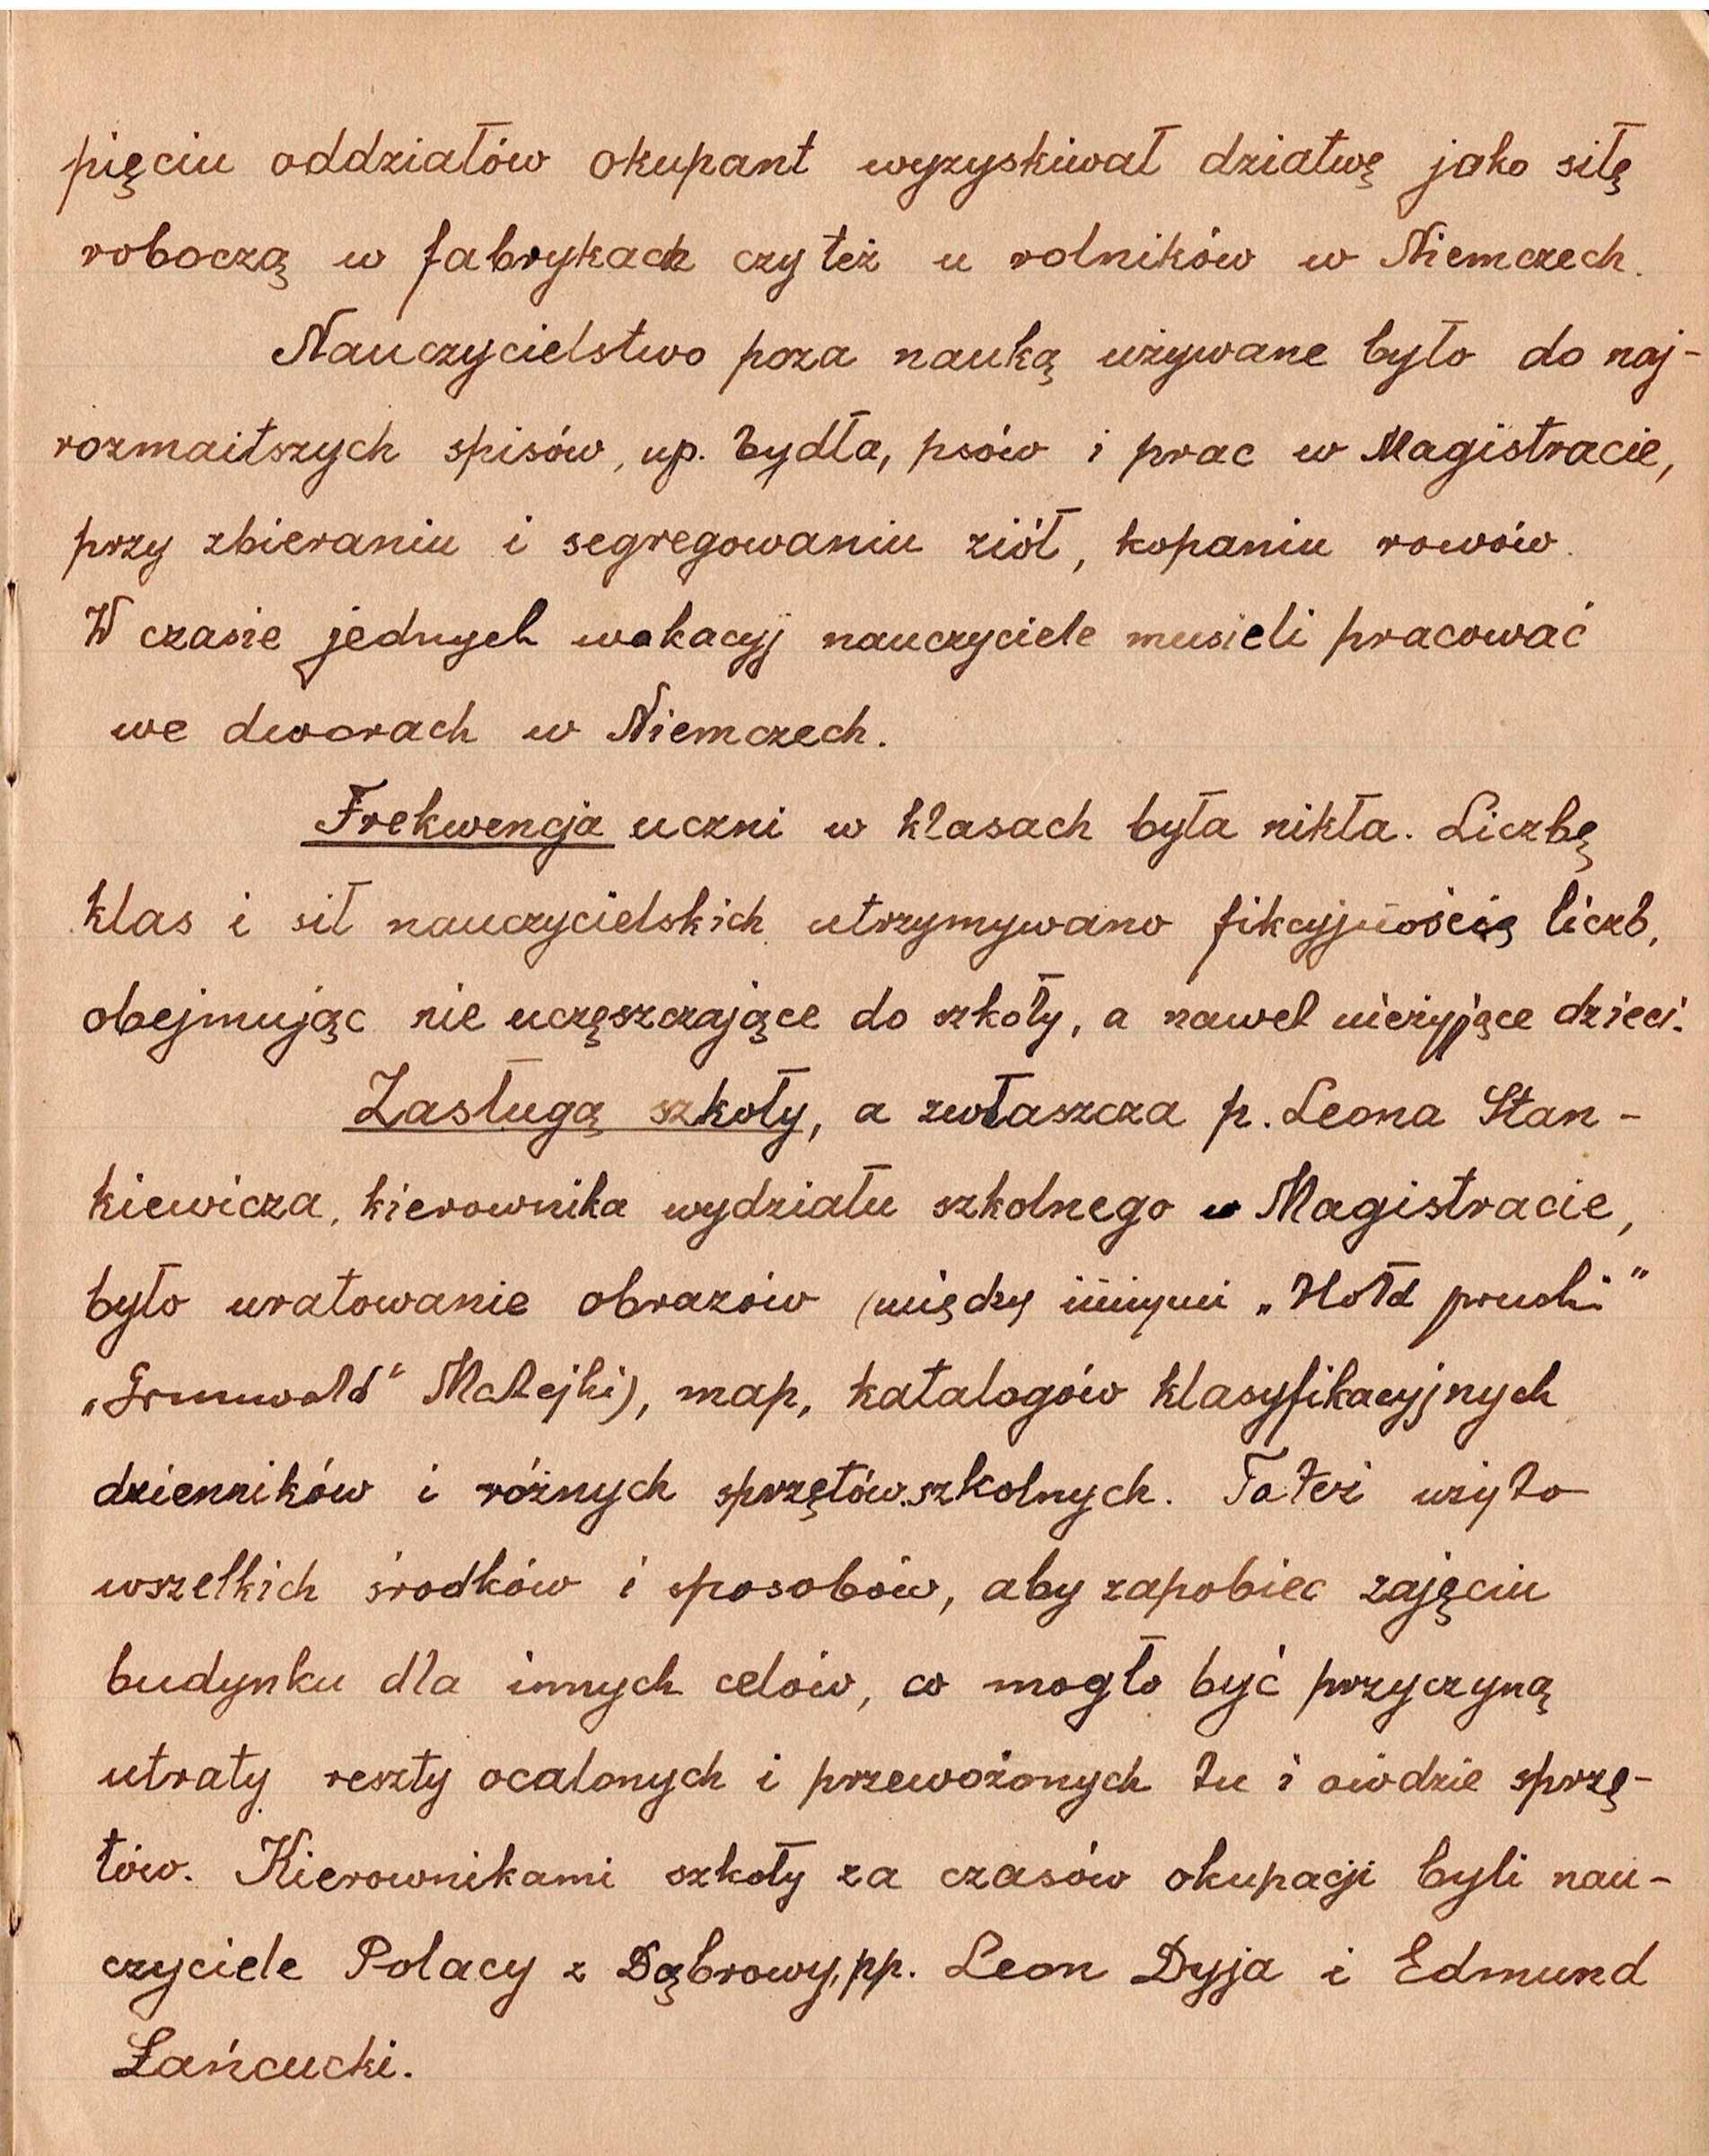 pięciu oddziałów okupant wyzyskiwał dziatwę jako siłę
roboczą w fabrykach czy też u rolników w Niemczech.
Nauczycielstwo poza nauką używane było do naj-
rozmaitszych spisów, np. bydła, psów i prac w Magistracie,
przy zbieraniu i segregowaniu ziół, kopaniu rowów.
W czasie jednych wakacyj nauczyciele musieli pracować
we dworach w Niemczech.
Frekwencja uczni w klasach była nikła. Liczbę
klas i sił nauczycielskich utrzymywano fikcyjnością liczb,
obejmując nie uczęszczające do szkoły, a nawet nieżyjące dzieci.
Zasługą szkoły, a zwłaszcza p. Leona Stan-
kiewicza, kierownika wydziału szkolnego w Magistracie,
było uratowanie obrazów (między innymi „Hołd pruski"
„Grunwald" Matejki), map, katalogów klasyfikacyjnych
dzienników i różnych sprzętów szkolnych. To też użyto
wszelkich środków i sposobów, aby zapobiec zajęciu
budynku dla innych celów, co mogło być przyczyną
utraty reszty ocalonych i przewożonych tu i ówdzie sprzę-
tów. Kierownikami szkoły za czasów okupacji byli nau-
czyciele Polacy z Dąbrowy, pp. Leon Dyja i Edmund
Łańcucki.